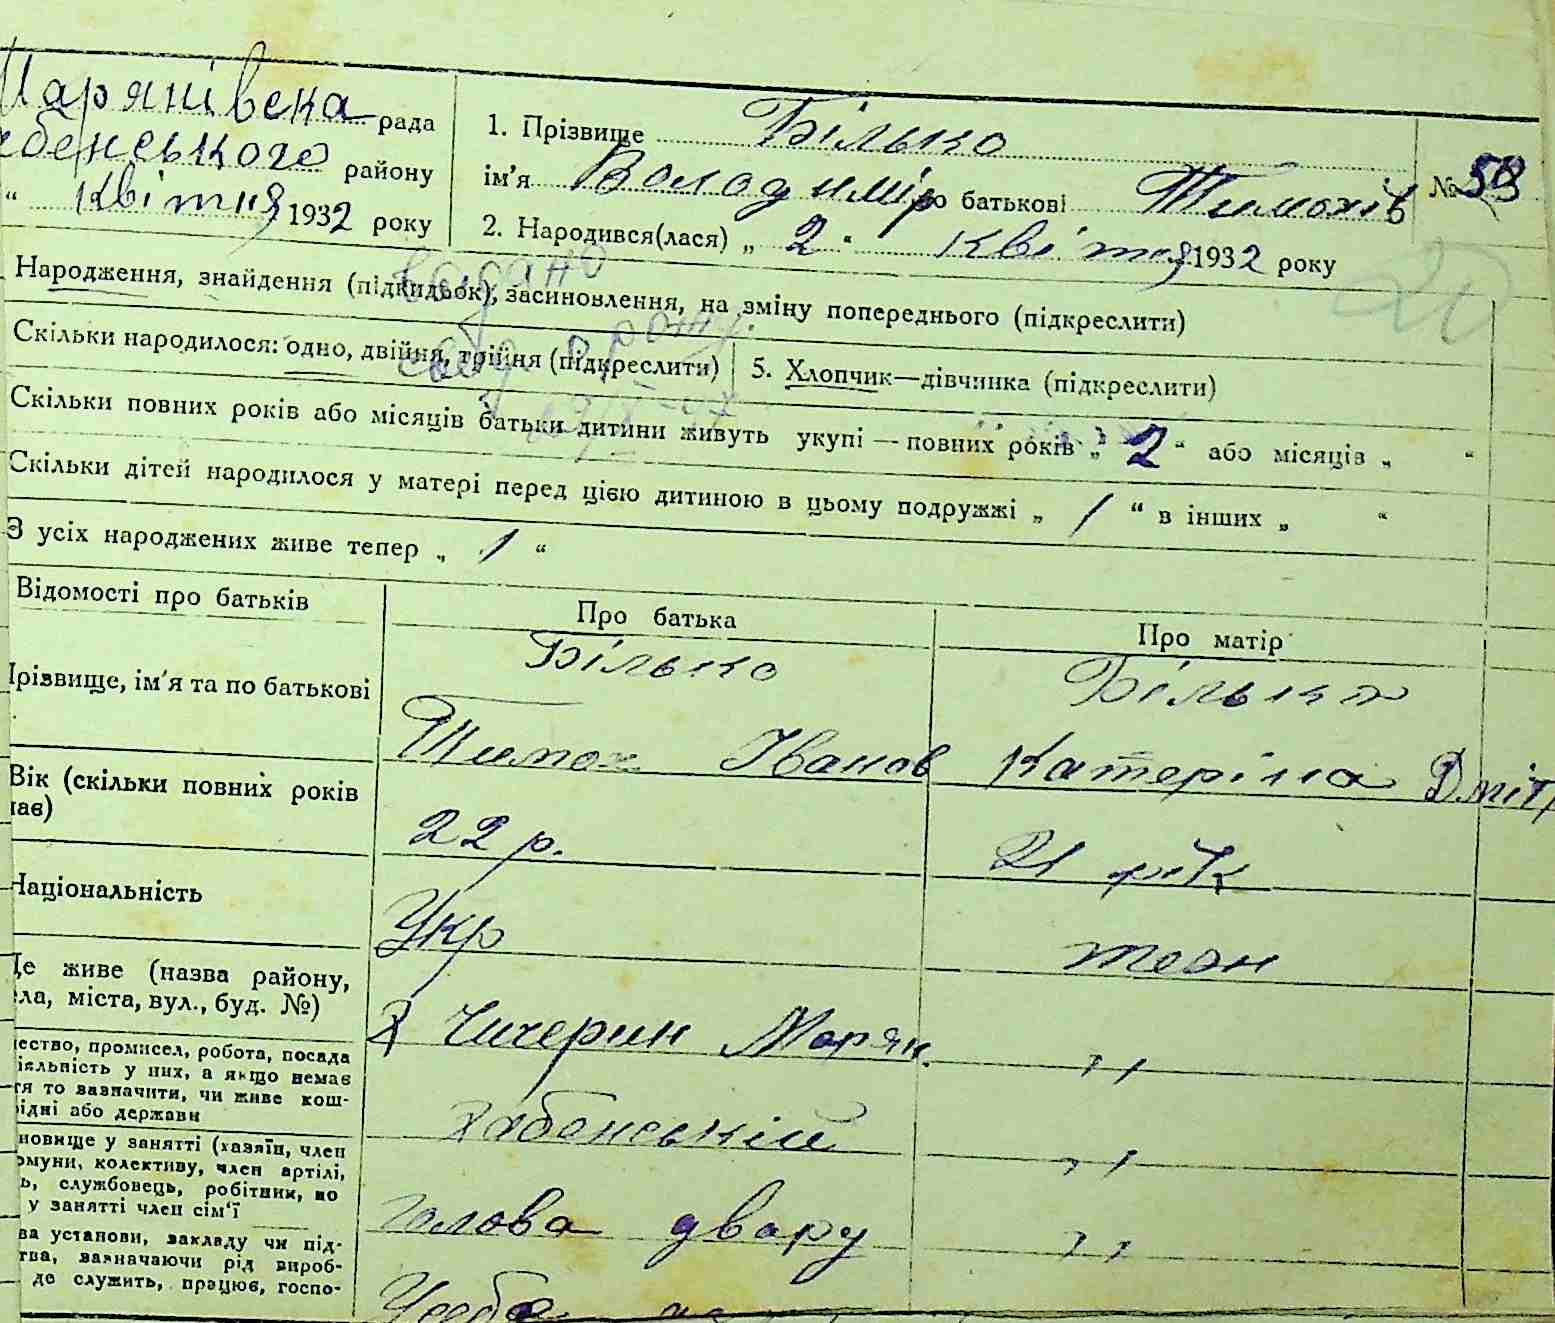 Марянівска рада
бенського району
“ квітня 1932 року
1. Прізвище Білько
ім'я Володимір по батькові Тимохів
№ 53
2. Народився(лася) „ 2 “ квітня 1932 року
Народження, знайдення (підкидьок), засиновлення, на зміну попереднього (підкреслити)
видано
Скільки народилося: одно, двійня, трійня (підкреслити)
5. Хлопчик—дівчинка (підкреслити)
Скільки повних років або місяців батьки дитини живуть укупі — повних років „ 2 “ або місяців „ “
Скільки дітей народилося у матері перед цією дитиною в цьому подружжі „ 1 “ в інших „ “
З усіх народжених живе тепер „ 1 “
Відомості про батьків
Про батька
Про матір
Прізвище, ім'я та по батькові
Білько
Тимох Іванов
Білько
Катеріна Дміт
Вік (скільки повних років
має)
22 р.
21 рік
Національність
Укр
тоже
Де живе (назва району,
ла, міста, вул., буд. №)
Х Чичерин Марян.
,,
ество, промисел, робота, посада
іяльність у них, а якщо немає
тя то зазначити, чи живе кош-
ідні або держави
хабенській
,,
новище у занятті (хазяїн, член
омуни, колективу, член артілі,
ь, службовець, робітник, по
у занятті член сім'ї
голова двору
,,
ва установи, закладу чи під-
тва, зазначаючи рід вироб-
де служить, працює, госпо-